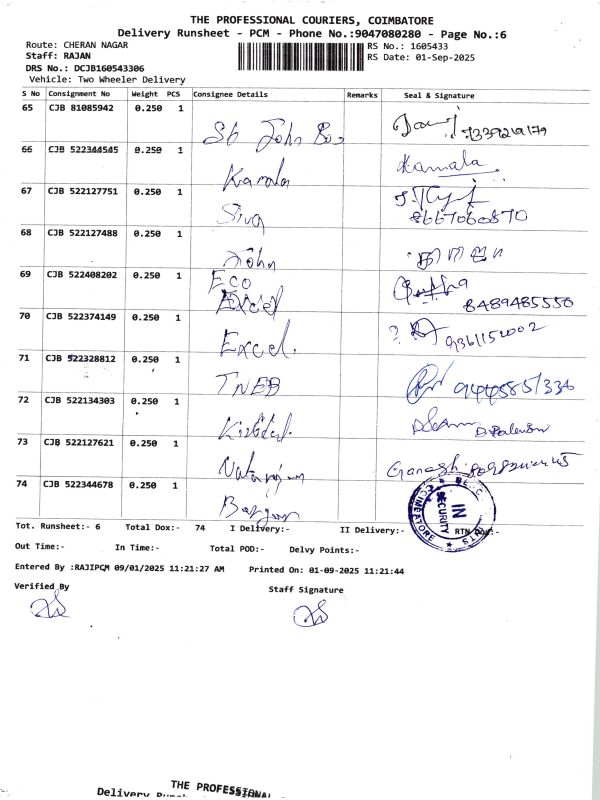 THE PROFESSIONAL COURIERS, COIMBATORE
Delivery Runsheet - PCM - Phone No.:9047080280 - Page No.:6
Route: CHERAN NAGAR
Staff: RAJAN
DRS No.: DCJB160543306
Vehicle: Two Wheeler Delivery
RS No.: 1605433
RS Date: 01-Sep-2025
S No Consignment No Weight PCS Consignee Details Remarks Seal & Signature
65 CJB 81085942 0.250 1
St John
66 CJB 522344545 0.250 1
Kamala Kamala
67 CJB 522127751 0.250 1
Siva 8667060870
68 CJB 522127488 0.250 1
John
69 CJB 522408202 0.250 1
Eco
Excel 8489485550
70 CJB 522374149 0.250 1
Excel.
71 CJB 522328812 0.250 1
TNEB
72 CJB 522134303 0.250 1
73 CJB 522127621 0.250 1
Ganesh
74 CJB 522344678 0.250 1
IN
SECURITY
COIMBATORE
Tot. Runsheet:- 6 Total Dox:- 74 I Delivery:- II Delivery:- RTN
Out Time:- In Time:- Total POD:- Delvy Points:-
Entered By :RAJIPCM 09/01/2025 11:21:27 AM Printed On: 01-09-2025 11:21:44
Verified By Staff Signature
THE PROFESSIONAL
Delivery